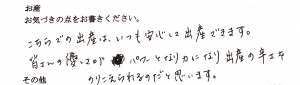 お産
お気づきの点をお書きください。
こちらでの出産は、いつも安心して出産できます。
皆さんの優しさが パワーとなり力になり 出産の辛さも
のりこえられるのだと思います。
その他